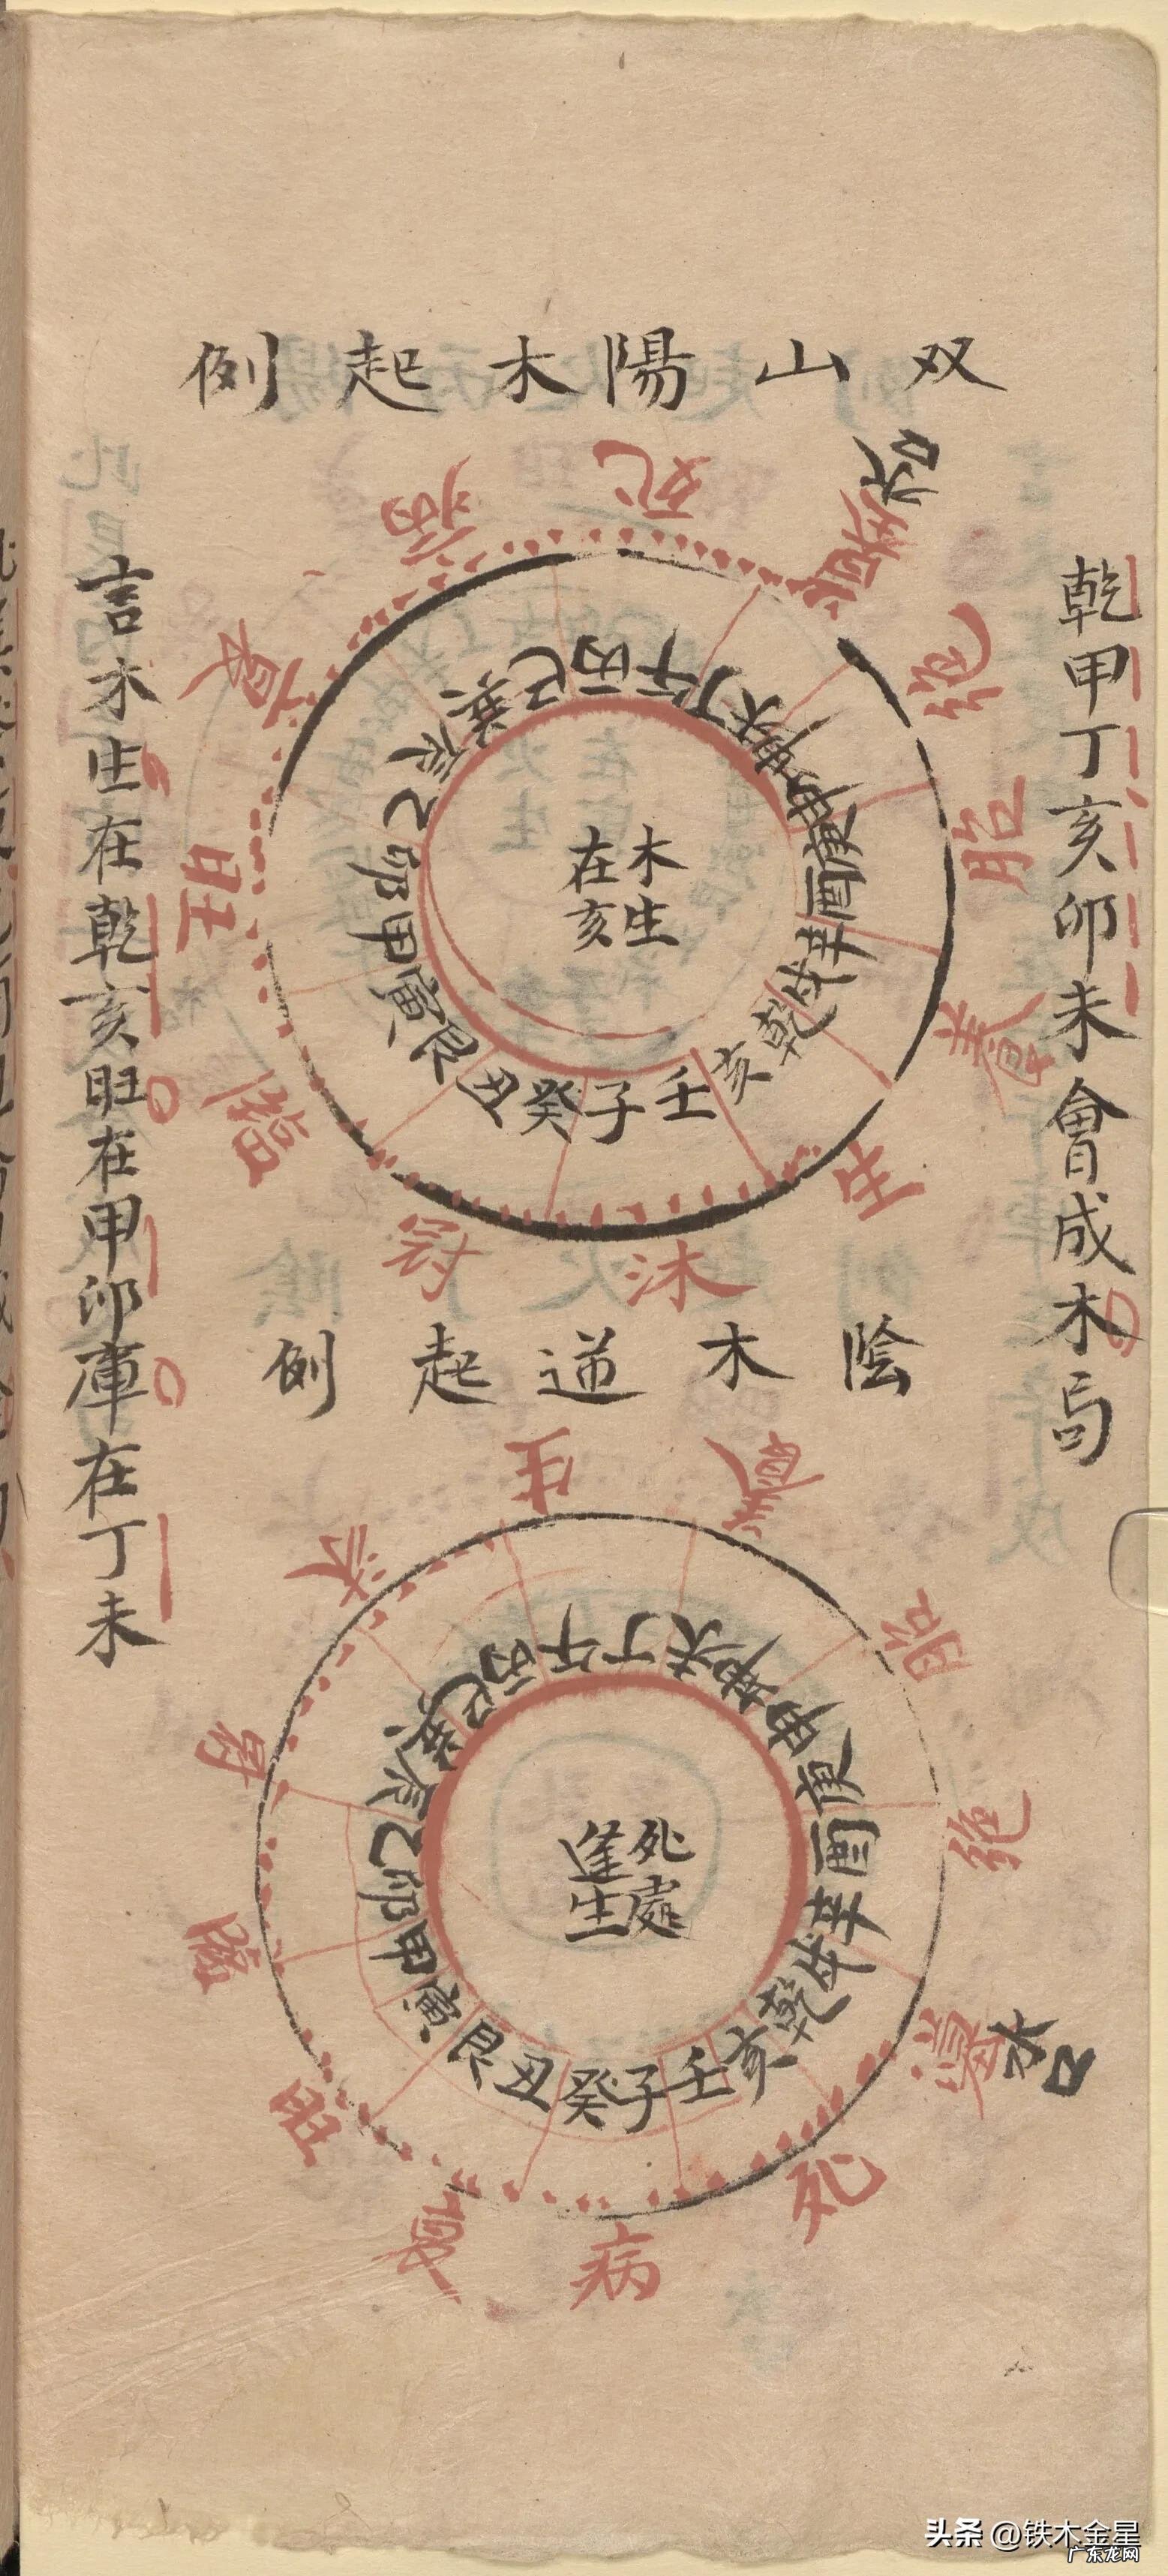 双山陽木起例
乾甲丁亥卯未會成木局
木生
在亥
壬子癸丑艮寅甲卯乙辰巽巳丙午丁未坤申庚酉辛戌乾亥
生沐冠臨旺衰病死墓絕胎養
水口
言木生在乾亥旺在甲卯庫在丁未
陰木逆起例
死處
逢生
壬子癸丑艮寅甲卯乙辰巽巳丙午丁未坤申庚酉辛戌乾亥
生沐冠臨旺衰病死墓絕胎養
水口
头条 @铁木金星
广东龙网